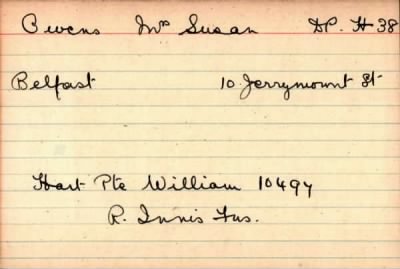 Owens Mrs Susan DP. H 38
Belfast 10 Jerrymount St
Hart Pte William 10497
R. Innis Fus.